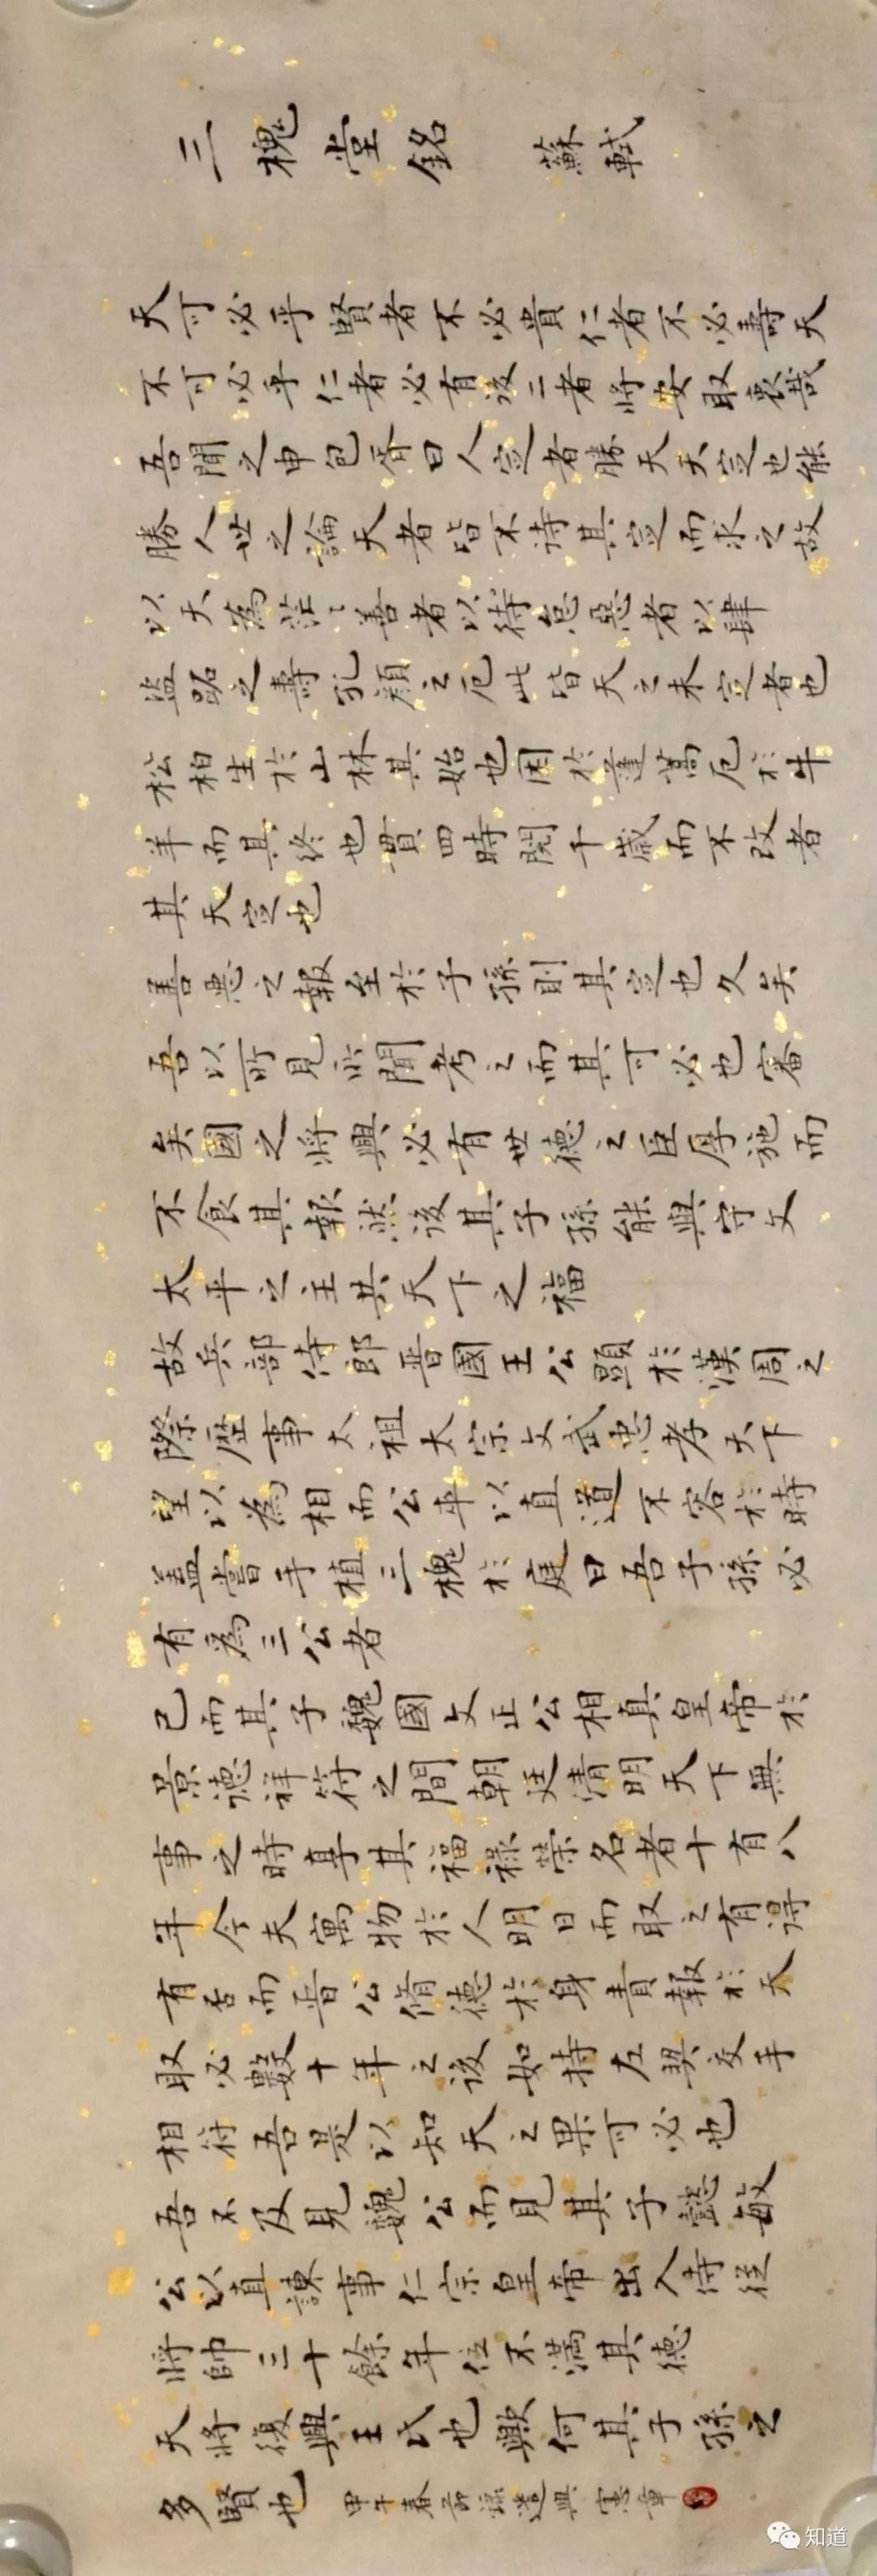 三槐堂銘 蘇軾
天可必乎賢者不必貴仁者不必壽天
不可必乎仁者必有後二者將安取衷哉
吾聞之申包胥曰人定者勝天天定也能
勝人世之論天者皆不待其定而求之故
以天為茫〻善者以待怠惡者以肆
盜跖之壽孔顏之厄此皆天之未定者也
松柏生於山林其始也困於蓬蒿厄於牛
羊而其終也貫四時閱千歲而不改者
其天定也
善惡之報至於子孫則其定也久矣
吾以所見所聞考之而其可必也審
矣國之將興必有世德之臣厚施而
不食其報然後其子孫能與守文
太平之主共天下之福
故兵部侍郎晉國王公顯於漢周之
際歷事太祖太宗文武忠孝天下
望以為相而公卒以直道不容於時
蓋嘗手植三槐於庭曰吾子孫必
有為三公者
已而其子魏國文正公相真皇帝於
景德祥符之間朝廷清明天下無
事之時享其福祿榮名者十有八
年今夫寓物於人明日而取之有得
有否而晉公脩德於身責報於天
取必數十年之後如持左契交手
相符吾是以知天之果可必也
吾不及見魏公而見其子懿敏
公以直諫事仁宗皇帝出入侍從
將帥三十餘年位不滿其德
天將復興王氏也歟何其子孫之
多賢也 甲午春節孫道興
知道